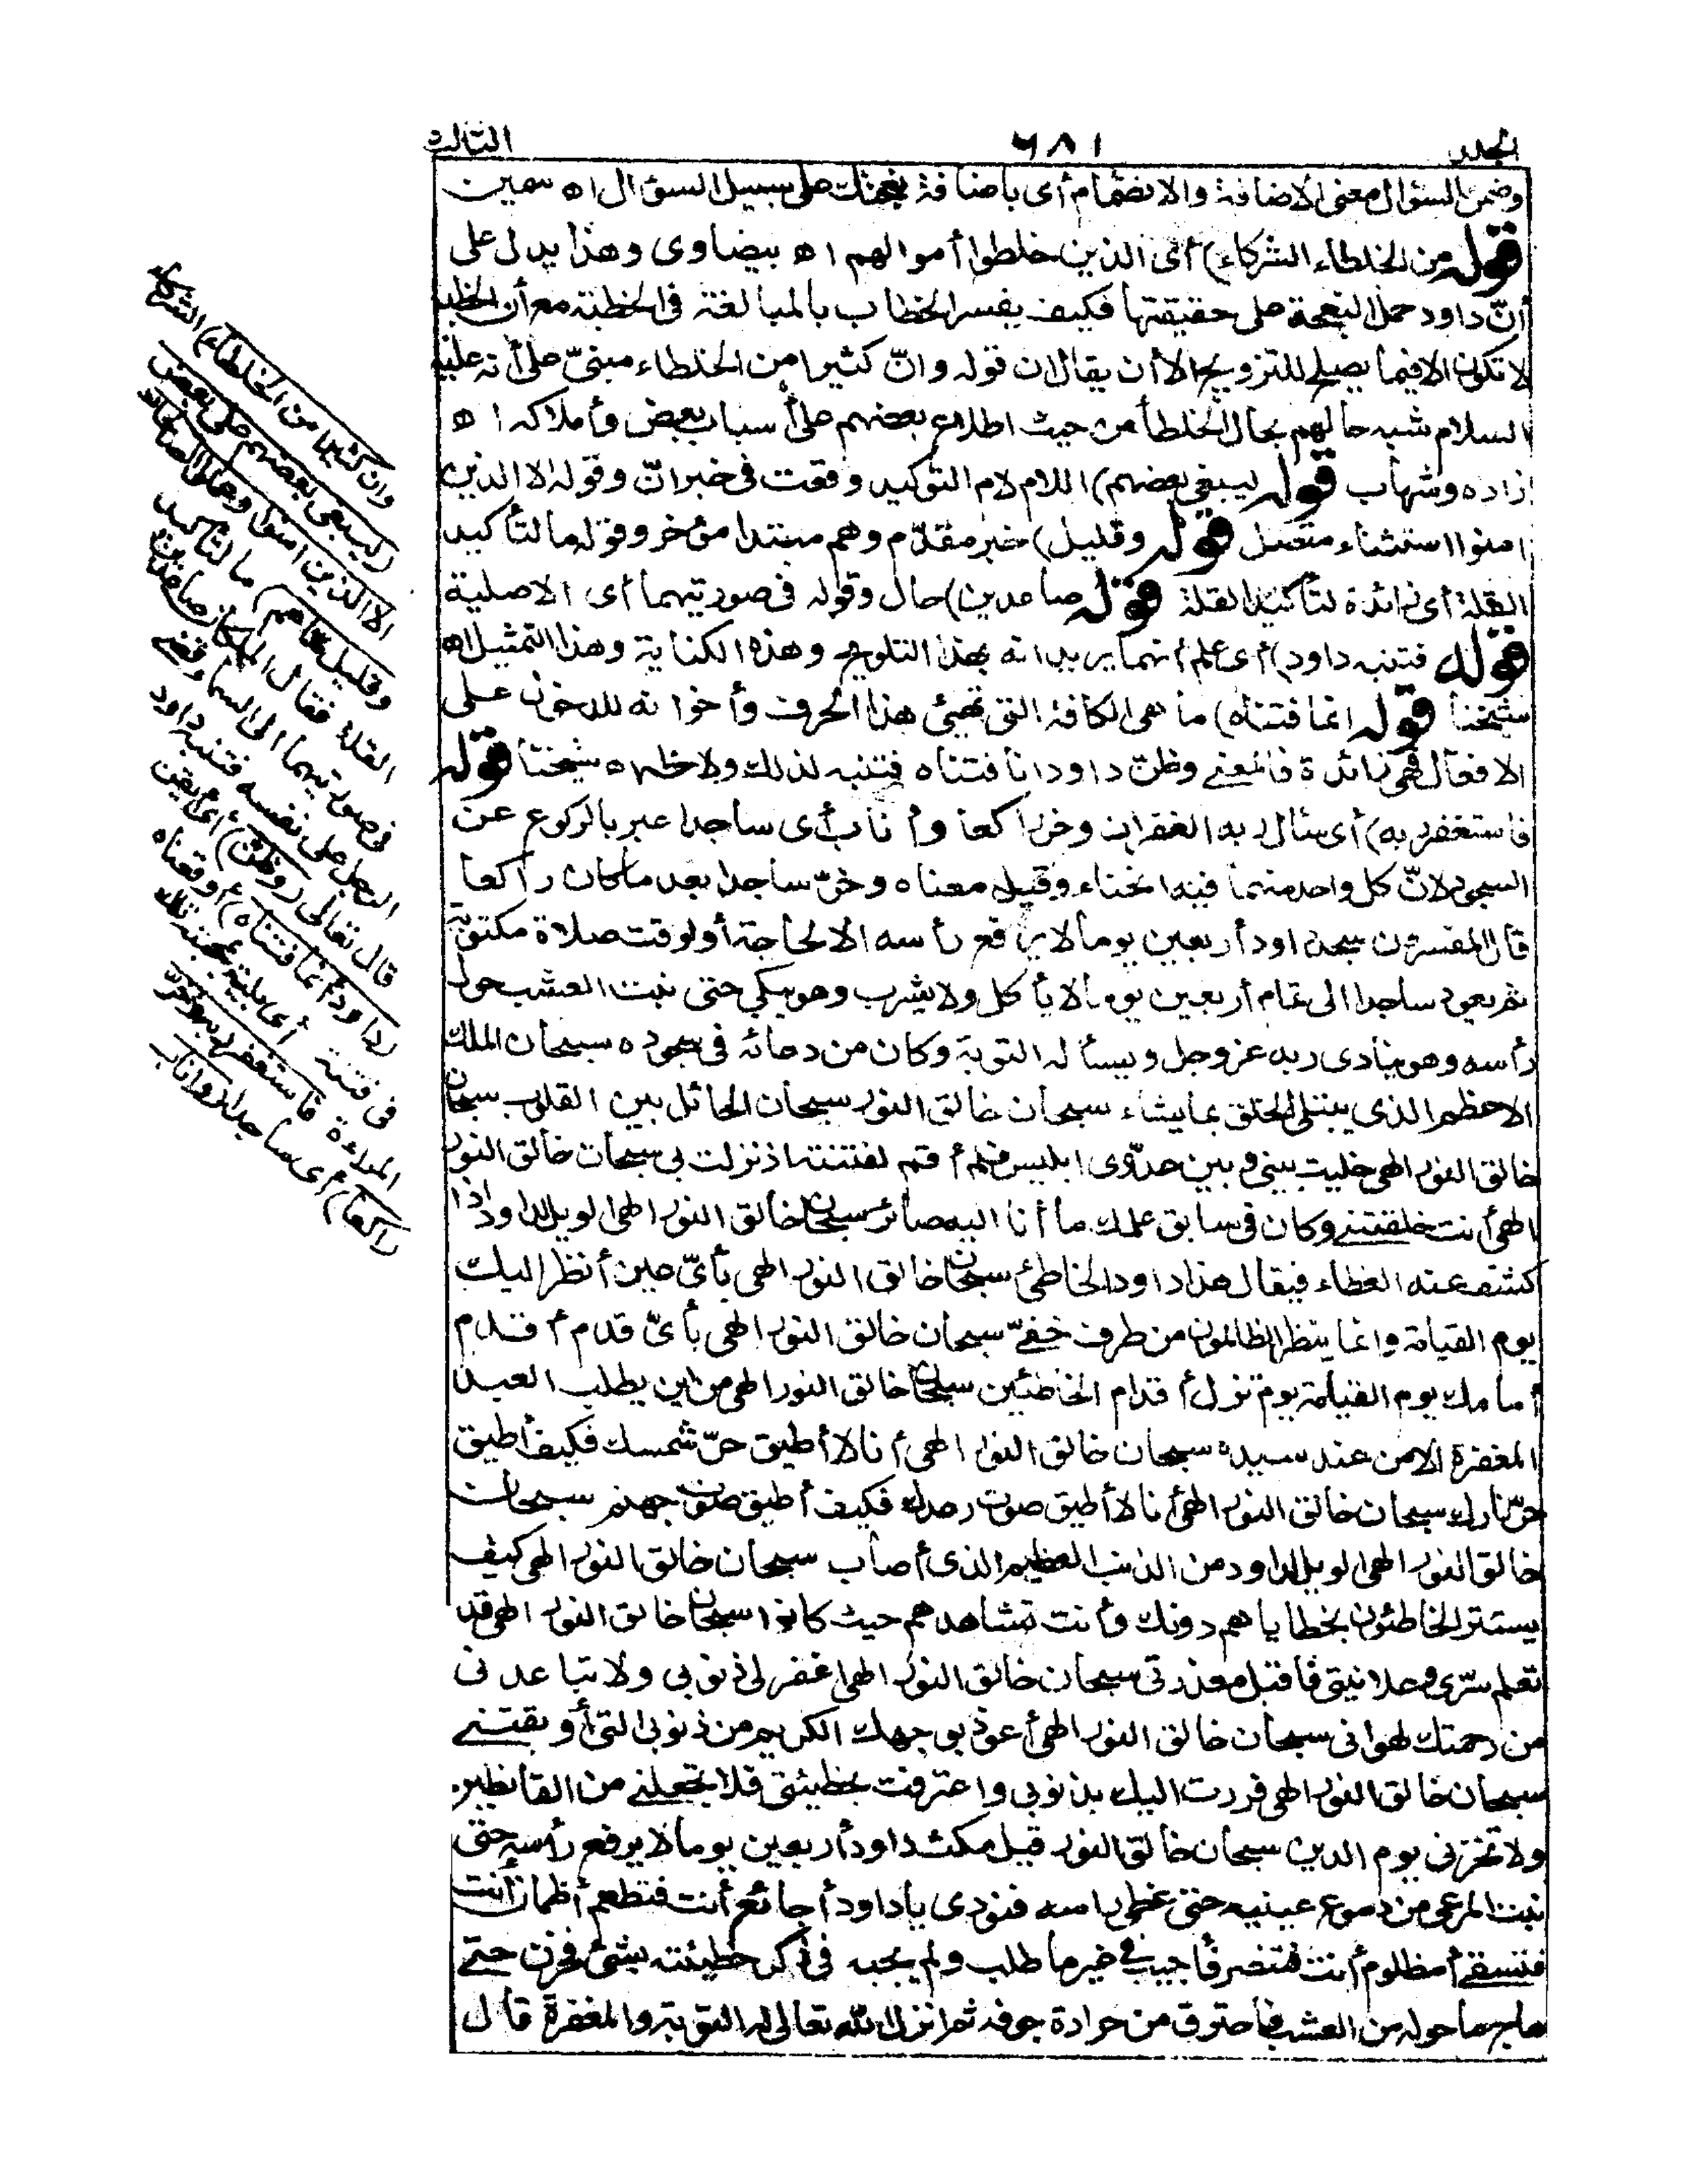 المجلد
٦٨١
الثالث
وضمن السؤال معنى الاضافة والانضمام أى باضافة نعجتك على سبيل السؤال اه سمين
قوله من الخلطاء الشركاء) أى الذين خلطوا أموالهم اه بيضاوى وهذا يدل على
أنّ داود حمل النعجة على حقيقتها فكيف يفسر الخطاب بالمبالغة فى الخطبة مع أن الخطبة
لا تكون الا فيما يصلح للتزويج الا أن يقال ان قوله وانّ كثيرا من الخلطاء مبنىّ على أنه عليه
السلام شبه حالهم بحال الخلطأ من حيث اطلاع بعضهم على أسباب بعض وأملاكه اه
زاده وشهاب قوله ليبغى بعضهم) اللام لام التوكيد وقعت فى خبر انّ وقوله الا الذين
امنوا استثناء متصل قوله وقليل) خبر مقدّم وهم مبتدا مؤخر وقوله ما لتأكيد
القلة أى زائدة لتأكيد القلة قوله صاعدين) حال وقوله فى صورتيهما أى الاصلية
قوله فتنبه داود) أى علم أنهما يريدانه بهذا التلويح وهذه الكناية وهذا التمثيل اه
شيخنا قوله انما فتناه) ما هى الكافة التى تهيئ هذا الحرف وأخواته للدخول على
الافعال فهى زائدة فالمعنے وظنّ داود انا فتناه فتنبه لذلك ولاحظه اه شيخنا قوله
فاستغفر ربه) أى سأل ربه الغفران وخر راكعا وأناب أى ساجدا عبر بالركوع عن
السجود لانّ كل واحد منهما فيه انحناء وقيل معناه وخرّ ساجدا بعد ما كان راكعا
قال المفسرون سجد داود أربعين يوما لا يرفع رأسه الا لحاجة أو لوقت صلاة مكتوبة
ثم يعود ساجدا الى تمام أربعين يوما لا يأكل ولا يشرب وهو يبكى حتى نبت العشب حول
رأسه وهو ينادى ربه عز وجل ويسأله التوبة وكان من دعائه فى سجوده سبحان الملك
الاعظم الذى يبتلى الخلق بما يشاء سبحان خالق النور سبحان الحائل بين القلوب سبحان
خالق النور الهى خليت بينى وبين عدوّى ابليس فلم أقم لفتنته اذ نزلت بى سبحان خالق النور
الهى أنت خلقتنے وكان فى سابق علمك ما أنا اليه صائر سبحان خالق النور الهى الويل لداود اذا
كشف عنه الغطاء فيقال هذا داود الخاطئ سبحان خالق النور الهى بأىّ عين أنظر اليك
يوم القيامة وانما ينظر الظالمون من طرف خفےّ سبحان خالق النور الهى بأىّ قدم أقدم
أمامك يوم القيامة يوم تزل أقدام الخاطئين سبحان خالق النور الهى من اين يطلب العبد
المغفرة الا من عند سيده سبحان خالق النور الهى أنا لا أطيق حرّ شمسك فكيف أطيق
حرّ نارك سبحان خالق النور الهى أنا لا أطيق صوت رعدك فكيف أطيق صوت جهنم سبحان
خالق النور الهى الويل لداود من الذنب العظيم الذى أصاب سبحان خالق النور الهى كيف
يستتر الخاطئون بخطاياهم دونك وأنت تشاهدهم حيث كانوا سبحان خالق النور الهى قد
تعلم سرّى وعلانيتى فاقبل معذرتى سبحان خالق النور الهى اغفر لى ذنوبى ولا تباعدنى
من رحمتك لهوانى سبحان خالق النور الهى أعوذ بوجهك الكريم من ذنوبى التى أوبقتنے
سبحان خالق النور الهى فررت اليك بذنوبى واعترفت بخطيئتى فلا تجعلنے من القانطين
ولا تخزنى يوم الدين سبحان خالق النور قيل مكث داود أربعين يوما لا يرفع رأسه حتى
نبت المرعى من دموع عينيه حتى غطى راسه فنودى ياداود أجائع أنت فتطعم أظمآن أنت
فتسقے أمظلوم أنت فتنصر فأجيب فى غير ما طلب ولم يجبه فى ذكر خطيئته بشئ فحزن حتے
هاج ما حوله من العشب فاحترق من حرارة جوفه ثم انزل الله تعالى له التوبة والمغفرة قال
وان كثيرا من الخلطاء) الشركاء
(ليبغى بعضهم على بعض
الا الذين امنوا وعملوا الصالحات
وقليل ما هم) ما لتأكيد
القلة فقال الملكان صاعدين
فى صورتيهما الى السما وقضے
الرجل على نفسه فتنبه داود
قال تعالى (وظن) أى أيقن
(داود أنما فتناه) أوقعناه
فى فتنة أى بلية بمحبته تلك
المراءة فاستغفر ربه وخرّ
راكعا) أى ساجدا (وأناب